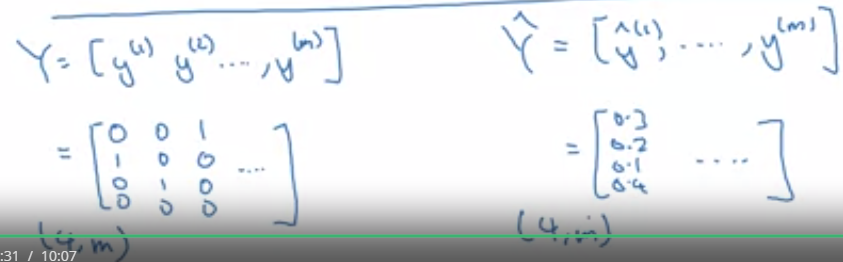 Y = [y^(1) y^(2) ...., y^(m)]
Ŷ = [ŷ^(1), ...., y^(m)]
= [0 0 1
1 0 0 ....
0 1 0
0 0 0]
= [0.3
0.2
0.1 ....
0.4]
(4, m)
(4, m)
:31 / 10:07